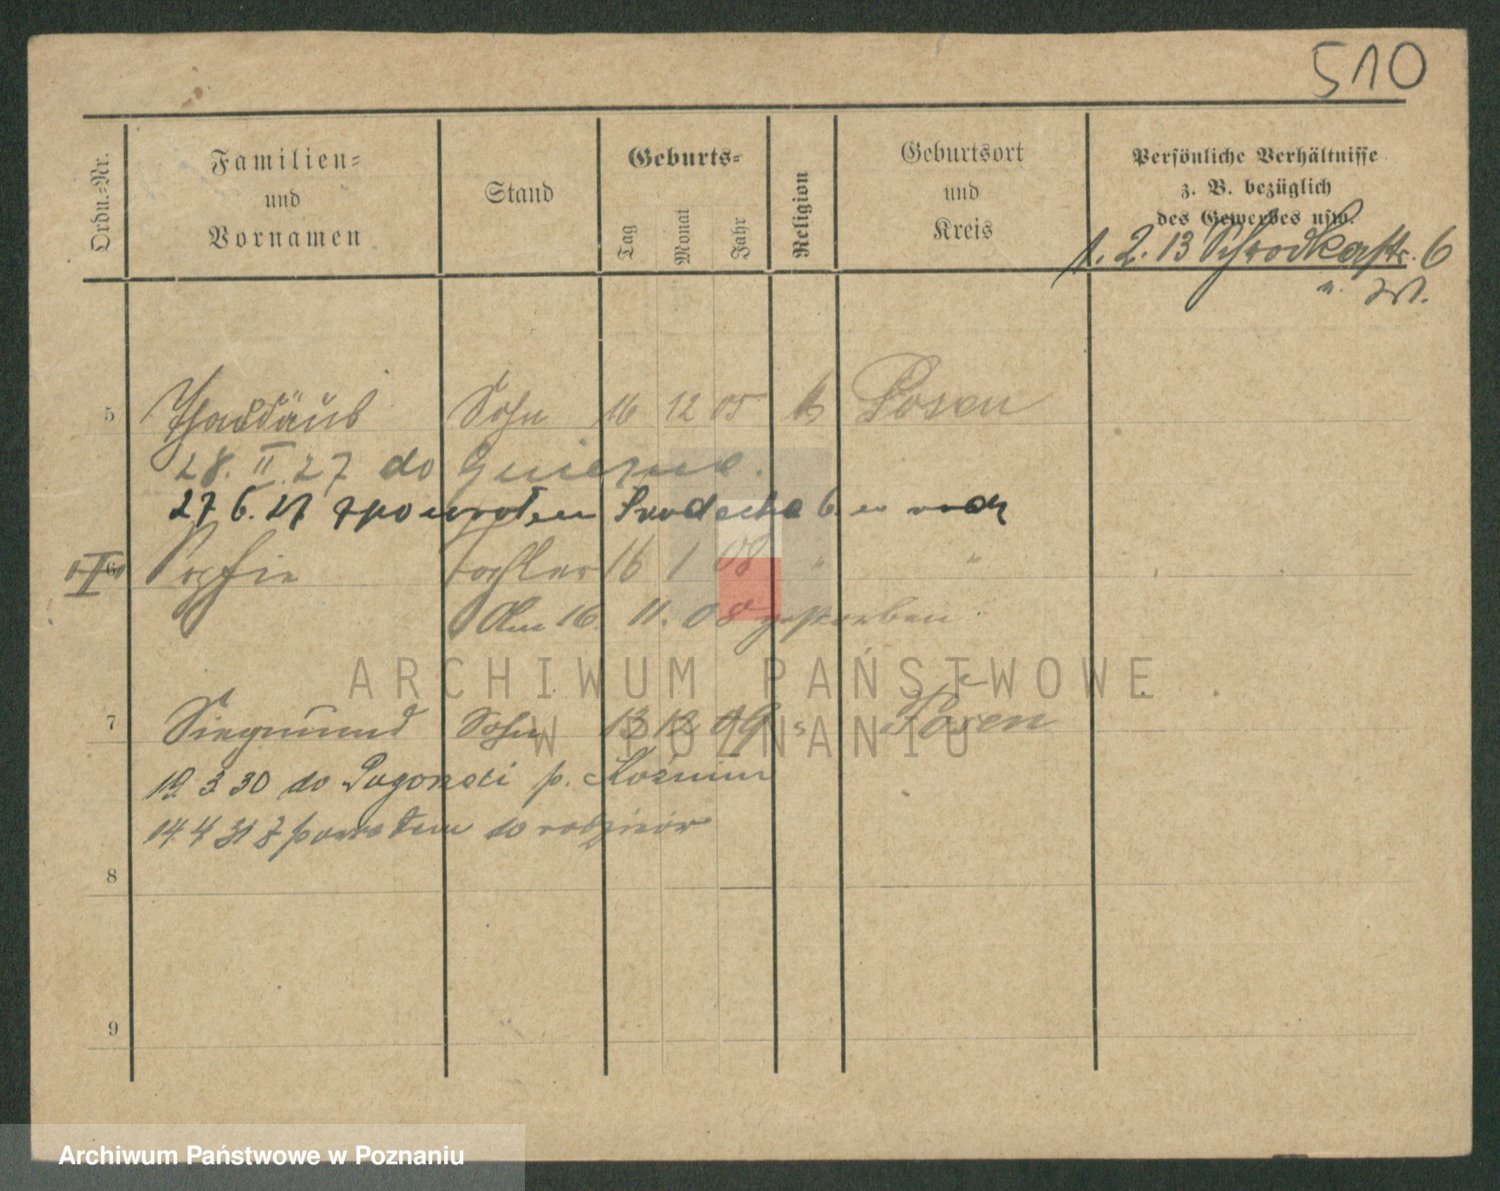 510
Ordn.-Nr.
Familien-
und
Vornamen
Stand
Geburts-
Tag
Monat
Jahr
Religion
Geburtsort
und
Kreis
Persönliche Verhältnisse
z. B. bezüglich
des Gewerbes usw.
1. 2. 13 Schrodkastr. 6
5 Thaddäus Sohn 16 12 05 k Posen
28. II. 27 do Gniezna.
27 6. 27 z powrotem Srodecka 6
6 Sophie Tochter 16 1 08 " "
Am 16. 11. 08 gestorben
7 Siegmund Sohn 13 12 09 Posen
19. 3 30 do p. Koźmin
14. 4 31 z powrotem
8
9
ARCHIWUM PAŃSTWOWE
W POZNANIU
Archiwum Państwowe w Poznaniu